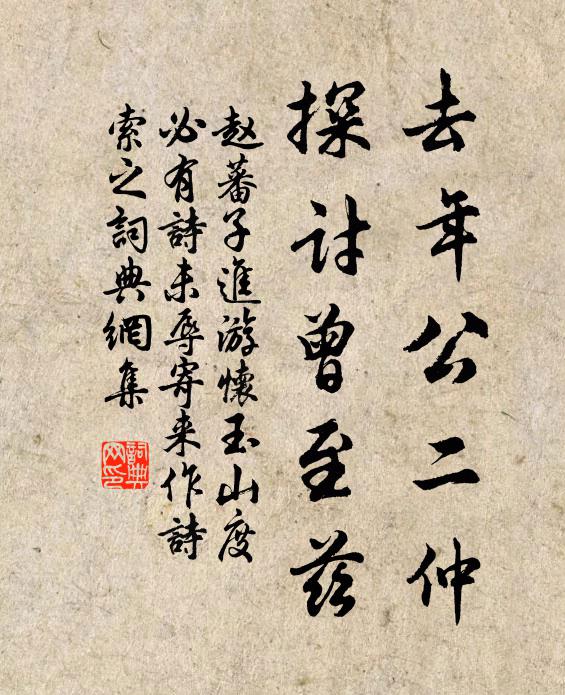 去年公二仲
探討曾至茲
赵蕃子進游懷玉山度
必有詩未辱寄来作詩
索之詞典網集
詞典
网印